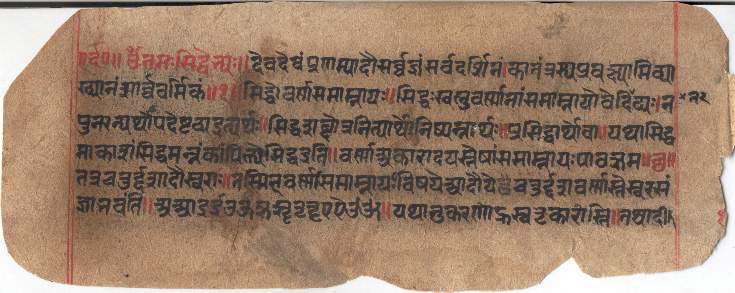 ॥ ॐ नमः सिद्धेभ्यः॥ देवदेवं प्रणम्यादौ सर्वज्ञं सर्वदर्शिनं। कातंत्रस्य प्रवक्ष्यामि व्या
ख्यानं शार्ववर्मिकं॥१॥ सिद्धो वर्णसमाम्नायः॥ सिद्धः खलु वर्णानां समाम्नायो वेदितव्यः। न
पुनरन्यथोपदेष्टव्य इत्यर्थः। सिद्धशब्दोत्र नित्यार्थो निष्पन्नार्थः प्रसिद्धार्थो वा। यथा सिद्ध
माकाशं सिद्धमन्नं कांपिल्लो सिद्ध इति॥ वर्णा अकारादयस्तेषां समाम्नायः पाठक्रमः॥छ॥
तत्र चतुर्दशादौ स्वराः॥ तस्मिन् वर्णसमाम्नायविषये आदौ ये चतुर्दश वर्णास्ते स्वरसं
ज्ञा भवंति॥ अ आ इ ई उ ऊ ऋ ॠ ऌ ॡ ए ऐ ओ औ॥ यथानुकरणे ह्रस्व ऌकारोस्ति॥ तथा दी